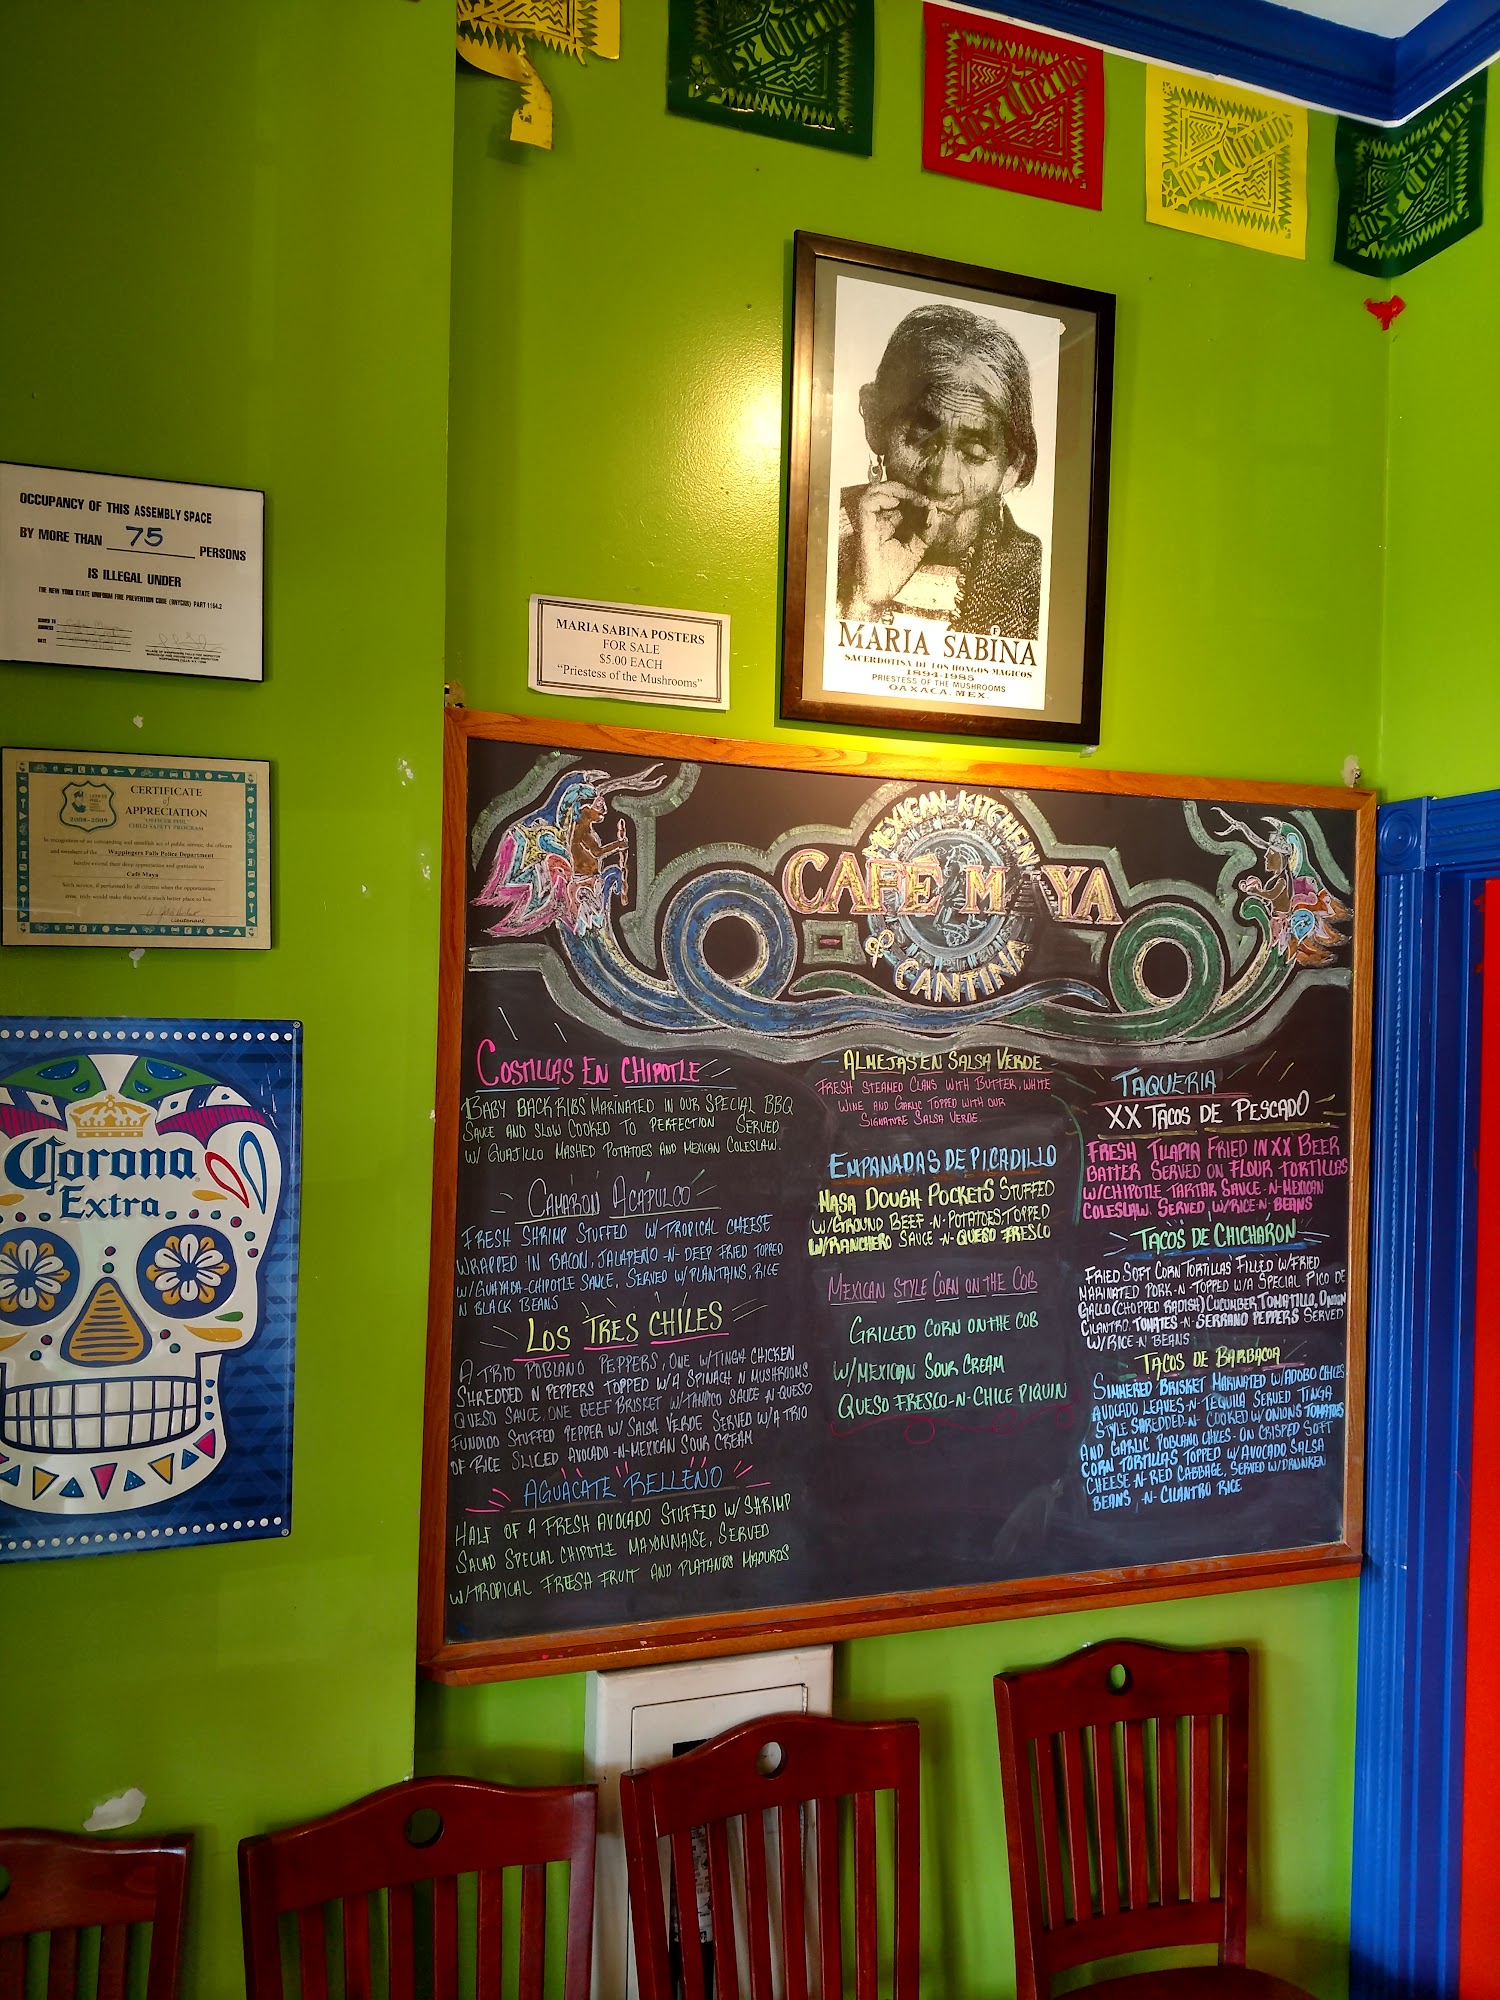 Jose Cuervo
Jose Cuervo
Jose Cuervo
OCCUPANCY OF THIS ASSEMBLY SPACE
BY MORE THAN 75 PERSONS
IS ILLEGAL UNDER
THE NEW YORK STATE UNIFORM FIRE PREVENTION CODE (NYCRR) PART 1164.2
MARIA SABINA POSTERS
FOR SALE
$5.00 EACH
"Priestess of the Mushrooms"
MARIA SABINA
SACERDOTISA DE LOS HONGOS MAGICOS
1894-1985
PRIESTESS OF THE MUSHROOMS
OAXACA, MEX.
CERTIFICATE
of
APPRECIATION
"OFFICER PHIL"
CHILD SAFETY PROGRAM
2008-2009
In recognition of an outstanding and unselfish act of public service, the officers
and members of the Wappingers Falls Police Department
hereby extend their deep appreciation and gratitude to
Café Maya
Such service, if performed by all citizens when the opportunities
arise, truly would make this world a much better place to live.
Lieutenant
Corona
Extra
MEXICAN KITCHEN
CAFE M YA
& CANTINA
COSTILLAS EN CHIPOTLE
BABY BACK RIBS MARINATED IN OUR SPECIAL BBQ
SAUCE AND SLOW COOKED TO PERFECTION SERVED
W/ GUAJILLO MASHED POTATOES AND MEXICAN COLESLAW.
CAMARON ACAPULCO
FRESH SHRIMP STUFFED W/TROPICAL CHEESE
WRAPPED IN BACON, JALAPEÑO -N- DEEP FRIED TOPPED
W/GUAYABA-CHIPOTLE SAUCE, SERVED W/PLANTAINS, RICE
N BLACK BEANS
LOS TRES CHILES
A TRIO POBLANO PEPPERS, ONE W/TINGA CHICKEN
SHREDDED N PEPPERS TOPPED W/A SPINACH N MUSHROOMS
QUESO SAUCE, ONE BEEF BRISKET W/TAMPICO SAUCE -N- QUESO
FUNDIDO STUFFED PEPPER W/ SALSA VERDE SERVED W/A TRIO
OF RICE SLICED AVOCADO -N- MEXICAN SOUR CREAM
AGUACATE RELLENO
HALF OF A FRESH AVOCADO STUFFED W/ SHRIMP
SALAD SPECIAL CHIPOTLE MAYONNAISE, SERVED
W/TROPICAL FRESH FRUIT AND PLATANOS MADUROS
ALMEJAS EN SALSA VERDE
FRESH STEAMED CLAMS WITH BUTTER, WHITE
WINE AND GARLIC TOPPED WITH OUR
SIGNATURE SALSA VERDE.
EMPANADAS DE PICADILLO
MASA DOUGH POCKETS STUFFED
W/GROUND BEEF -N- POTATOES, TOPPED
W/RANCHERO SAUCE -N- QUESO FRESCO
MEXICAN STYLE CORN ON THE COB
GRILLED CORN ON THE COB
W/MEXICAN SOUR CREAM
QUESO FRESCO -N- CHILE PIQUIN
TAQUERIA
XX TACOS DE PESCADO
FRESH TILAPIA FRIED IN XX BEER
BATTER SERVED ON FLOUR TORTILLAS
W/CHIPOTLE TARTAR SAUCE -N- MEXICAN
COLESLAW. SERVED W/RICE -N- BEANS
TACOS DE CHICHARON
FRIED SOFT CORN TORTILLAS FILLED W/FRIED
MARINATED PORK -N- TOPPED W/A SPECIAL PICO DE
GALLO (CHOPPED RADISH) CUCUMBER TOMATILLO, ONION
CILANTRO, TOMATES -N- SERRANO PEPPERS SERVED
W/RICE -N- BEANS
TACOS DE BARBACOA
SIMMERED BRISKET MARINATED W/ADOBO CHILES
AVOCADO LEAVES -N- TEQUILA SERVED TINGA
STYLE SHREDDED -N- COOKED W/ONIONS TOMATOES
AND GARLIC POBLANO CHILES - ON CRISPED SOFT
CORN TORTILLAS TOPPED W/ AVOCADO SALSA
CHEESE -N- RED CABBAGE, SERVED W/DRUNKEN
BEANS -N- CILANTRO RICE